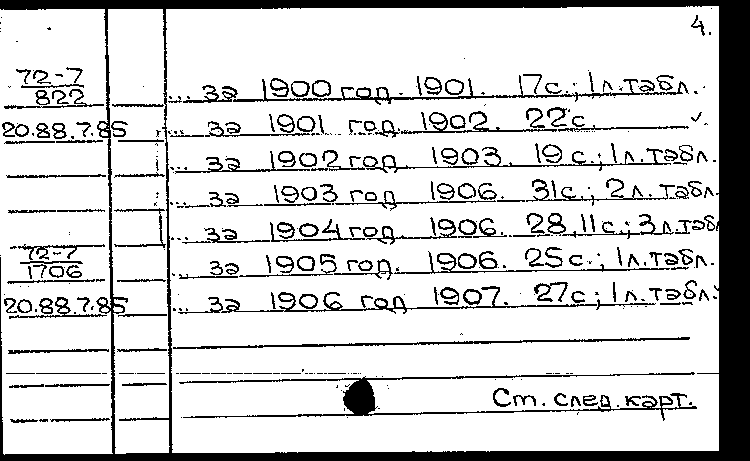 4.
72-7
822
... за 1900 год. 1901. 17с.; 1л.табл.
20.88.7.85 ... за 1901 год. 1902. 22с.
... за 1902 год. 1903. 19с.; 1л.табл.
... за 1903 год 1906. 31с.; 2л.табл.
... за 1904 год. 1906. 28,11с.; 3л.табл
72-7
1706
... за 1905 год. 1906. 25с.; 1л.табл.
20.88.7.85 ... за 1906 год 1907. 27с; 1л.табл.
Ст. след. карт.